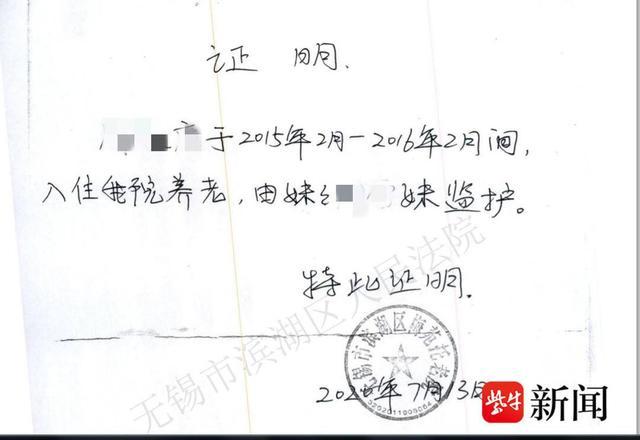 证 明.
于2015年2月—2016年2月间,
入住我院养老,由妹 妹监护。
特此证明.
无锡市滨湖区
7月13日
无锡市滨湖区人民法院
紫牛新闻